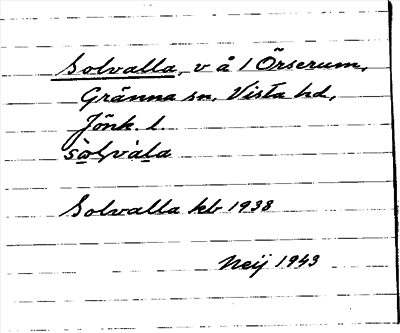 Solvalla, v å 1 Örserum,
Gränna sn, Vista hd,
Jönk. l.
sòl,vàla
Solvalla kb 1938
Neij 1943